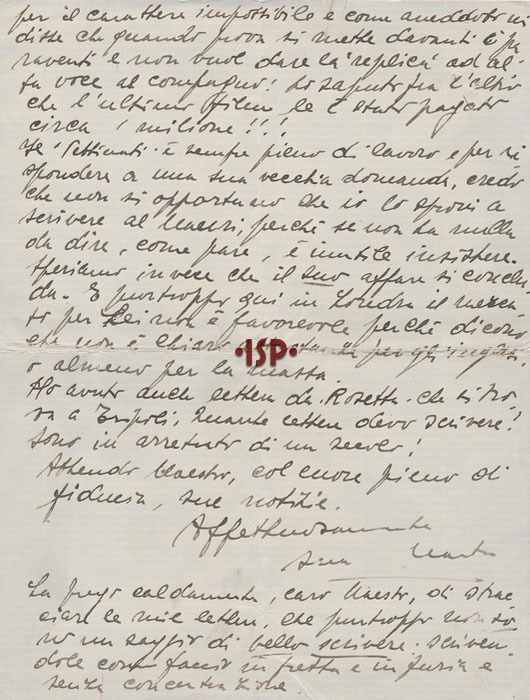 per il carattere impossibile e come aneddoto mi
disse che quando prova si mette davanti i pa
raventi e non vuol dare la replica ad al-
ta voce al compagno! Ho saputo fra l'altro
che l'ultimo film le è stato pagato
circa 1 milione!!!
Se Settimati è sempre pieno di lavoro e per ri
spondere a una sua vecchia domanda, credo
che non si opportuno che io lo sproni a
scrivere al Maestri, perché se non ha nulla
da dire, come pare, è inutile insistere.
Speriamo invece che il suo affare si conclu
da. E purtroppo qui in Londra il merca-
to per Lei non è favorevole perché dicono
che non è chiaro per gli inglesi,
o almeno per la massa.
Ho avuto anche lettera da Rosetta che si tro
va a Tripoli, Quante lettere devo scrivere!
Sono in arretrato di un secolo!
Attendo Maestro, col cuore pieno di
fiducia, sue notizie.
Affettuosamente
Sua
La prego caldamente, caro Maestro, di strac
ciare le mie lettere, che purtroppo non so
no un saggio di bello scrivere. Scriven
dole come faccio in fretta e in furia e
senza concentrazione
•ISP•